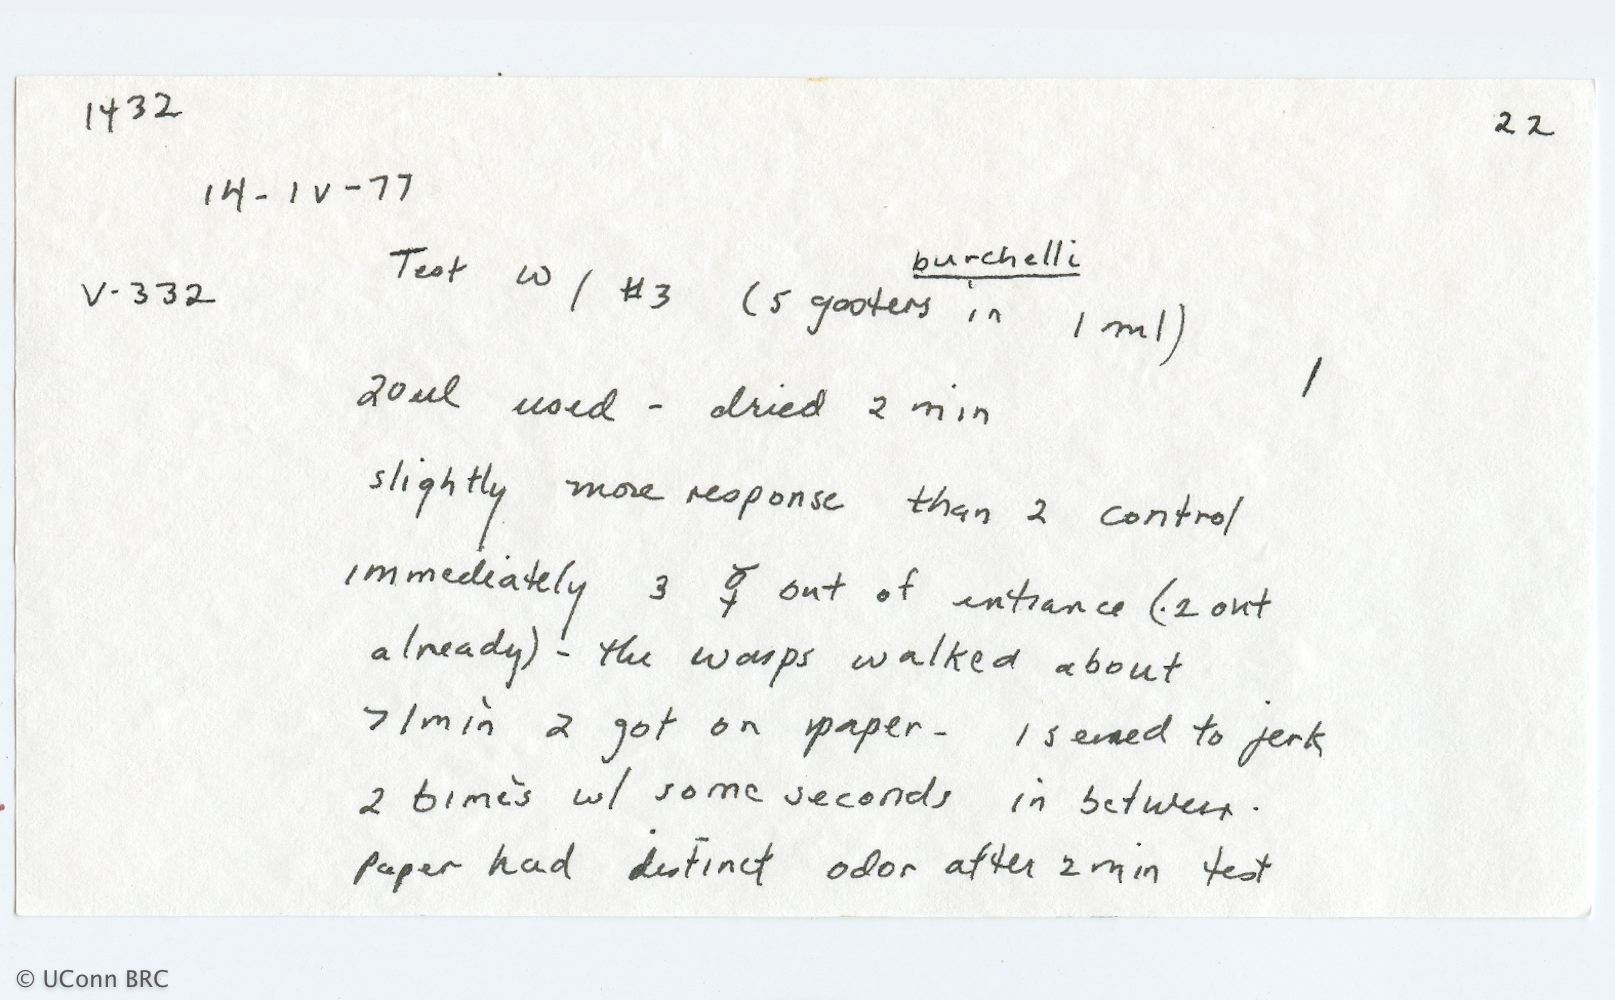 1432
22
14-IV-77
V-332
burchelli
Test w/ #3 (5 gasters in 1 ml)
1
20ul used - dried 2 min
slightly more response than 2 control
immediately 3 ☿ out of entrance (.2 out
already) - the wasps walked about
>1min 2 got on paper - 1 semed to jerk
2 times w/ some seconds in between.
Paper had distinct odor after 2 min test
© UConn BRC